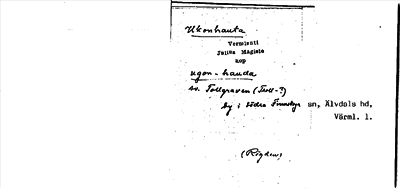 Ukonhauta
Vermlanti
Julius Mägiste
kop
ugon-hauda
sv. Tollgraven (Troll-?)
by i Södra Finnskoga sn, Älvdals hd,
Värml. l.
(Rigdew)